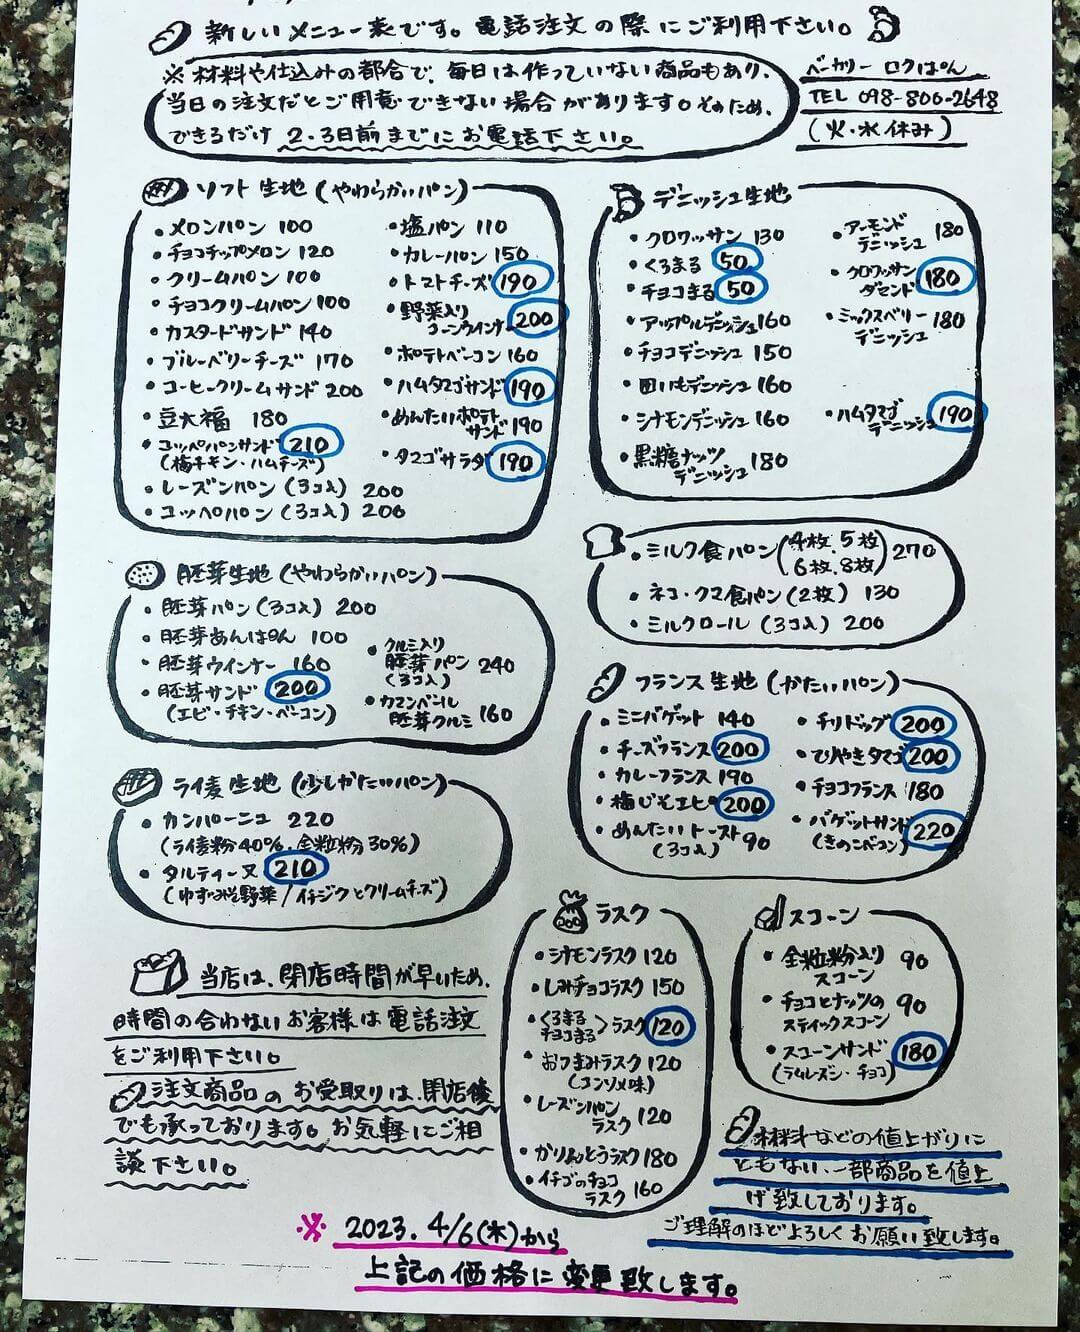 新しいメニュー表です。電話注文の際にご利用下さい。
※材料や仕込みの都合で、毎日は作っていない商品もあり、
当日の注文だとご用意できない場合があります。そのため、
できるだけ 2・3日前までにお電話下さい。
ベーカリー ロクぱん
TEL 098-800-2648
(火・水休み)
ソフト生地(やわらかいパン)
・メロンパン 100
・チョコチップメロン 120
・クリームパン 100
・チョコクリームパン 100
・カスタードサンド 140
・ブルーベリーチーズ 170
・コーヒークリームサンド 200
・豆大福 180
・コッペパンサンド 210
(梅チキン・ハムチーズ)
・レーズンパン(3コ入) 200
・コッペパン(3コ入) 200
・塩パン 110
・カレーパン 150
・トマトチーズ 190
・野菜入り
コーンウインナー 200
・ポテトベーコン 160
・ハムタマゴサンド 190
・めんたいポテト
サンド 190
・タマゴサラダ 190
デニッシュ生地
・クロワッサン 130
・くろまる 50
・チョコまる 50
・アップルデニッシュ 160
・チョコデニッシュ 150
・田いもデニッシュ 160
・シナモンデニッシュ 160
・黒糖ナッツ
デニッシュ 180
・アーモンド
デニッシュ 180
・クロワッサン
ダマンド 180
・ミックスベリー
デニッシュ 180
・ハムタマゴ
デニッシュ 190
・ミルク食パン(4枚、5枚
6枚、8枚) 270
・ネコ・クマ食パン(2枚) 130
・ミルクロール(3コ入) 200
胚芽生地(やわらかいパン)
・胚芽パン(3コ入) 200
・胚芽あんぱん 100
・胚芽ウインナー 160
・胚芽サンド 200
(エビ・チキン・ベーコン)
・クルミ入り
胚芽パン 240
(3コ入)
・カマンベール
胚芽クルミ 160
フランス生地(かたいパン)
・ミニバゲット 140
・チーズフランス 200
・カレーフランス 190
・梅じそエピ 200
・めんたいトースト 90
(3コ入)
・チリドッグ 200
・てりやきタマゴ 200
・チョコフランス 180
・バゲットサンド 220
(きのこベーコン)
ライ麦生地(少しかたいパン)
・カンパーニュ 220
(ライ麦粉40%・全粒粉30%)
・タルティーヌ 210
(ゆずみそ野菜/イチジクとクリームチーズ)
ラスク
・シナモンラスク 120
・しみチョコラスク 150
・くろまる
チョコまる>ラスク 120
・おつまみラスク 120
(コンソメ味)
・レーズンパン
ラスク 120
・かりんとうラスク 180
・イチゴのチョコ
ラスク 160
スコーン
・全粒粉入り
スコーン 90
・チョコとナッツの
スティックスコーン 90
・スコーンサンド 180
(ラムレーズン・チョコ)
当店は、閉店時間が早いため、
時間の合わないお客様は電話注文
をご利用下さい。
注文商品のお受取りは、閉店後
でも承っております。お気軽にご相
談下さい。
材料などの値上がりに
ともない、一部商品を値上
げ致しております。
ご理解のほどよろしくお願い致します。
※ 2023. 4/6(木)から
上記の価格に変更致します。